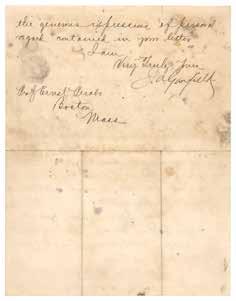 the generous expressions of personal
regard contained in your letter
I am
Very Truly Yours
J. A. Garfield
Ernst
Boston
Mass